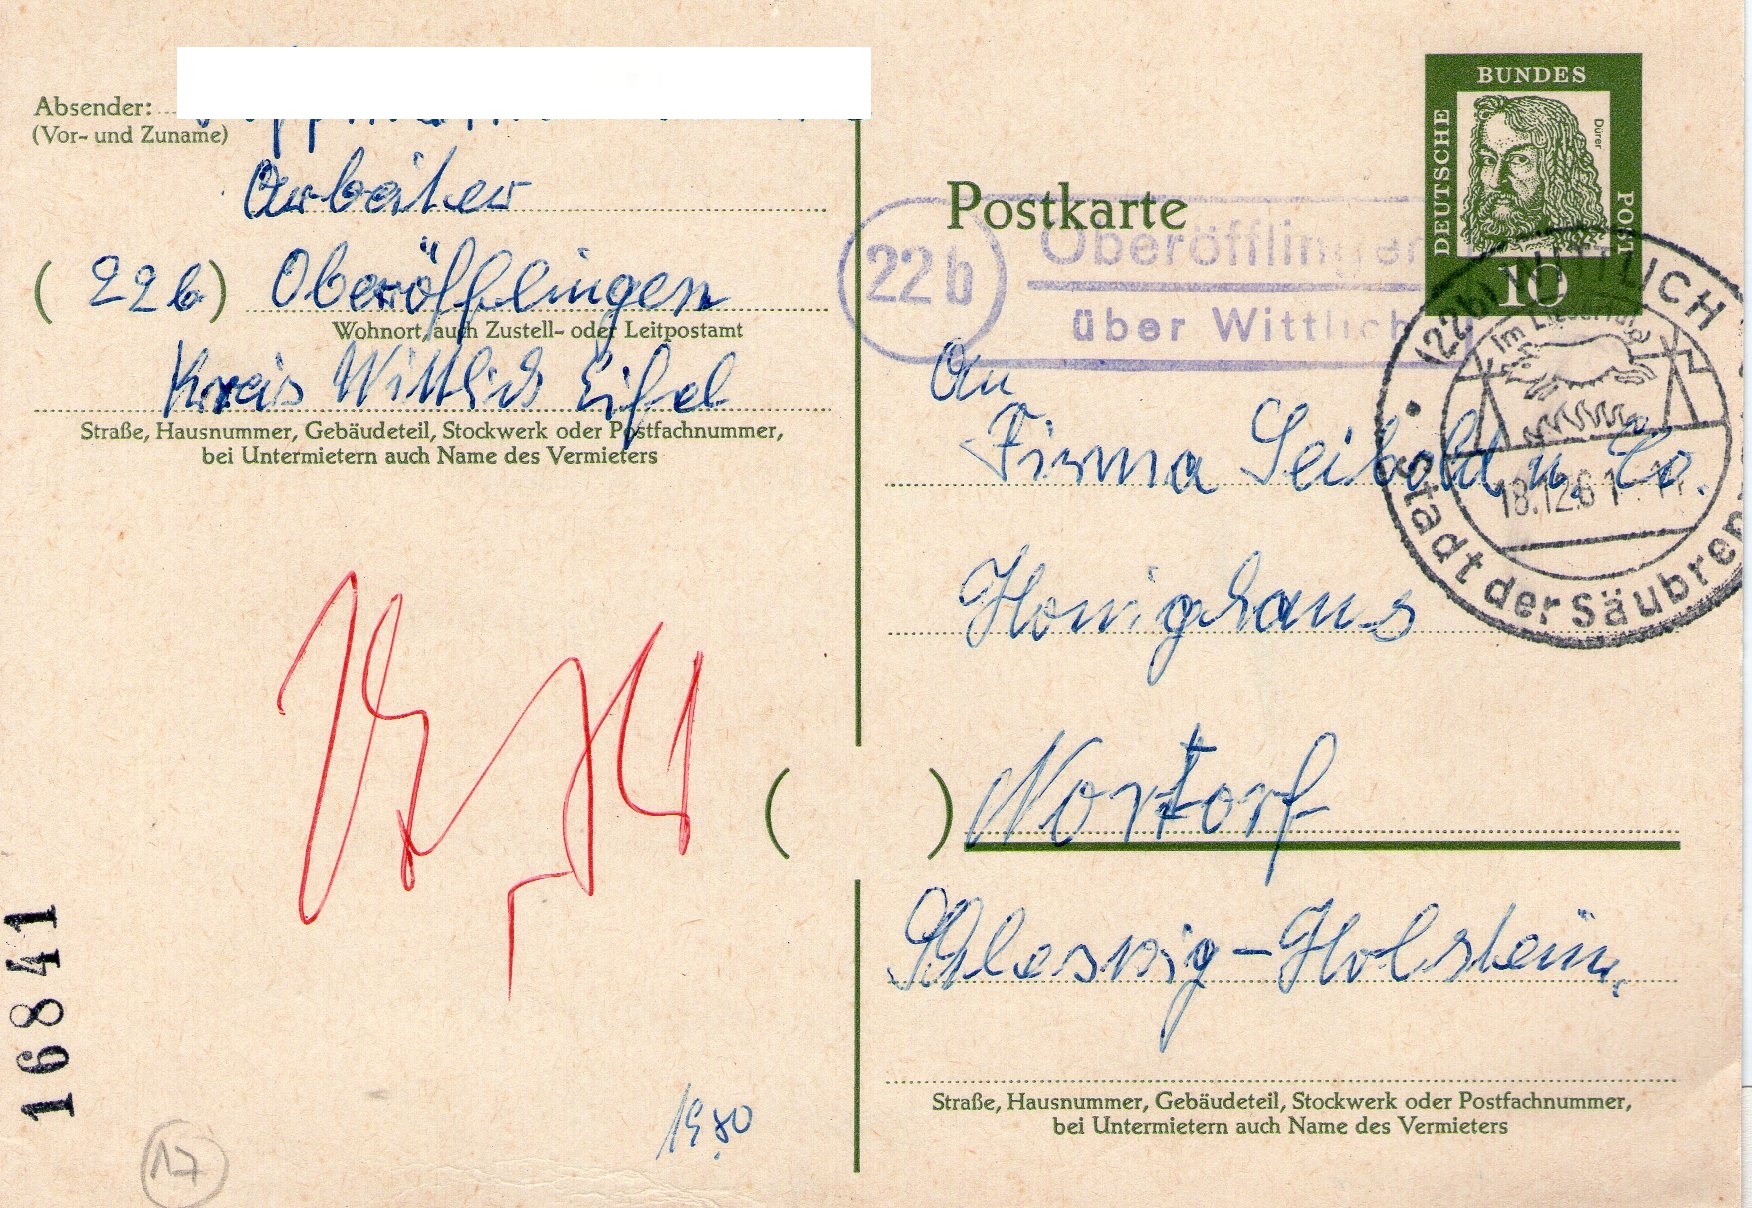 Absender:
(Vor- und Zuname)
Arbeiter
(22b) Oberöfflingen
Wohnort, auch Zustell- oder Leitpostamt
Kreis Wittlich Eifel
Straße, Hausnummer, Gebäudeteil, Stockwerk oder Postfachnummer,
bei Untermietern auch Name des Vermieters
16841
17
Postkarte
22b
Oberöfflingen
über Wittlich
DEUTSCHE
BUNDES
POST
Dürer
10
(22b) WITTLICH
Im Liesertale
18.12.61
Stadt der Säubrenner
An
Firma Seibold u. Co.
Honighaus
( ) Nortorf
Schleswig-Holstein.
Straße, Hausnummer, Gebäudeteil, Stockwerk oder Postfachnummer,
bei Untermietern auch Name des Vermieters